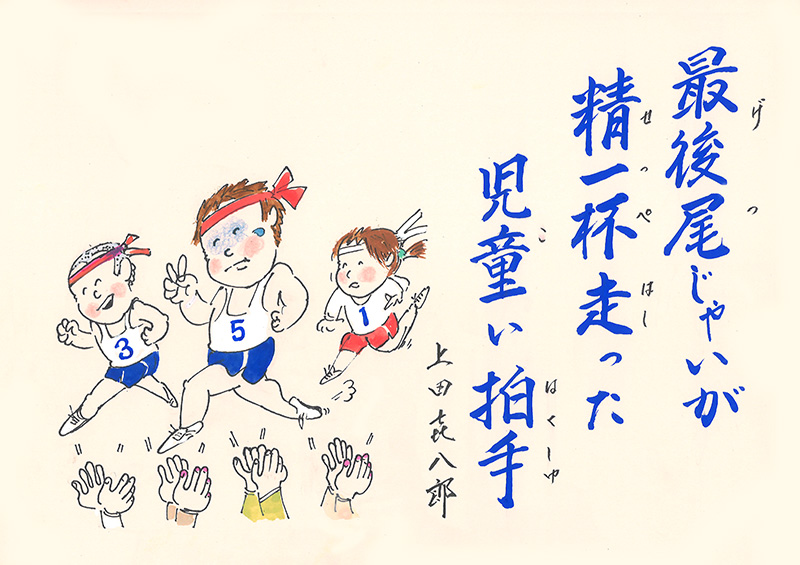 最後尾じゃいが
げつ
精一杯走った
せっぺはし
児童い拍手
こはくしゆ
上田喜八郎
3
5
1